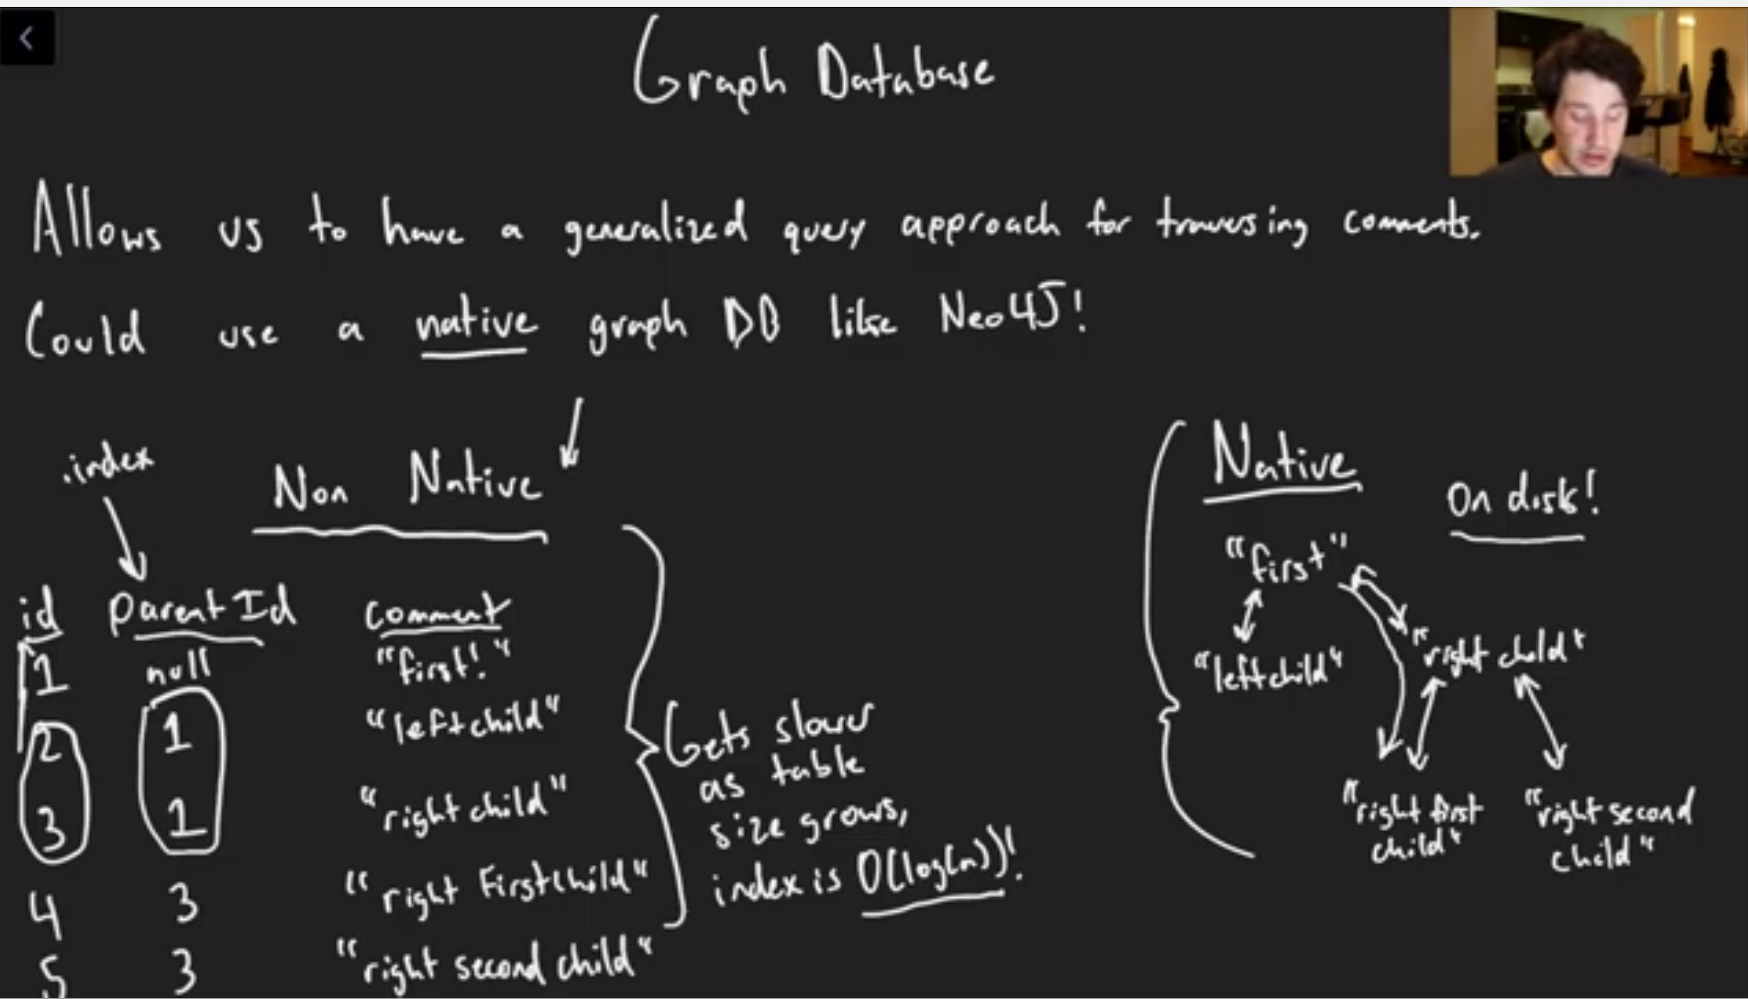 Graph Database
Allows us to have a generalized query approach for traversing comments.
Could use a native graph DB like Neo4J!
index
Non Native
id Parent Id comment
1 null "first!"
2 1 "leftchild"
3 1 "right child"
4 3 "right Firstchild"
5 3 "right second child"
Gets slower
as table
size grows,
index is O(log(n))!
Native
On disk!
"first"
"leftchild"
"right child"
"right first
child"
"right second
child"